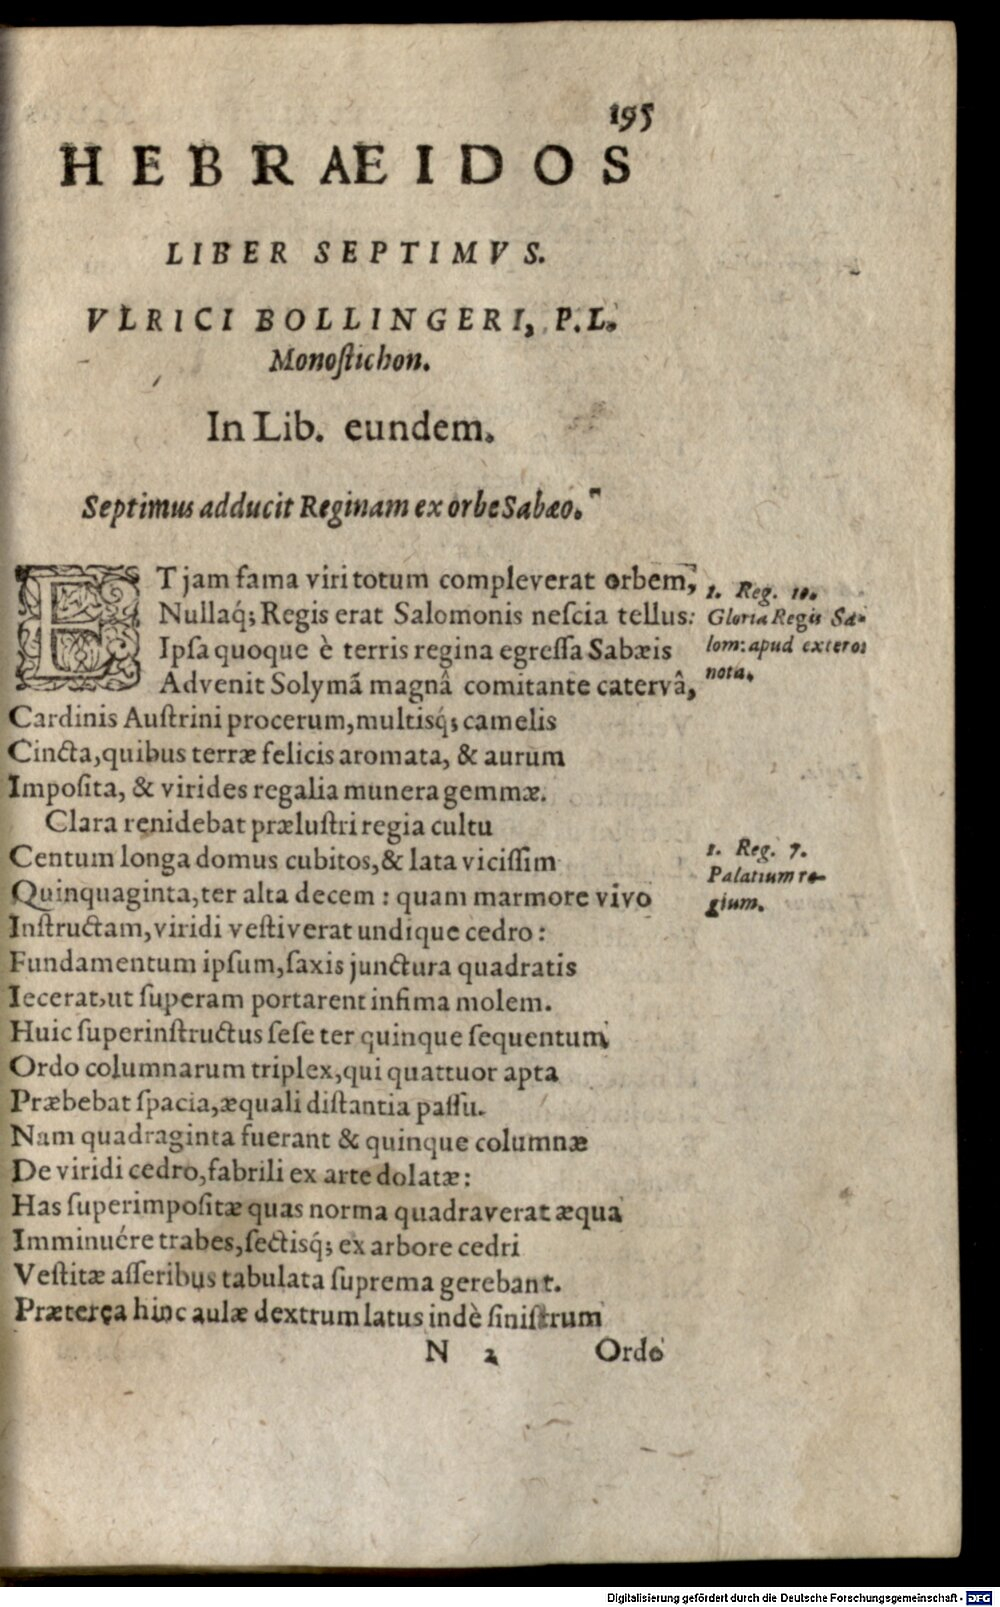 195
HEBRAEIDOS
LIBER SEPTIMVS.
VLRICI BOLLINGERI, P.L.
Monoſtichon.
In Lib. eundem.
Septimus adducit Reginam ex orbe Sabæo.
ET jam fama viri totum compleverat orbem,
Nullaq́; Regis erat Salomonis neſcia tellus:
Ipſa quoque è terris regina egreſſa Sabæis
Advenit Solymã magnâ comitante catervâ,
1. Reg. 10.
Gloria Regis Sa-
lom: apud exteros
nota.
Cardinis Auſtrini procerum, multisq́; camelis
Cincta, quibus terræ felicis aromata, & aurum
Impoſita, & virides regalia munera gemmæ.
Clara renidebat præluſtri regia cultu
Centum longa domus cubitos, & lata viciſſim
Quinquaginta, ter alta decem : quam marmore vivo
Inſtructam, viridi veſtiverat undique cedro :
1. Reg. 7.
Palatium re-
gium.
Fundamentum ipſum, ſaxis junctura quadratis
Iecerat, ut ſuperam portarent infima molem.
Huic ſuperinſtructus ſeſe ter quinque ſequentum
Ordo columnarum triplex, qui quattuor apta
Præbebat ſpacia, æquali diſtantia paſſu.
Nam quadraginta fuerant & quinque columnæ
De viridi cedro, fabrili ex arte dolatæ :
Has ſuperimpoſitæ quas norma quadraverat æqua
Imminuére trabes, ſectisq́; ex arbore cedri
Veſtitæ aſſeribus tabulata ſuprema gerebant.
Præterea hinc aulæ dextrum latus indè ſiniſtrum
N 2 Ordo
Digitalisierung gefördert durch die Deutsche Forschungsgemeinschaft - DFG